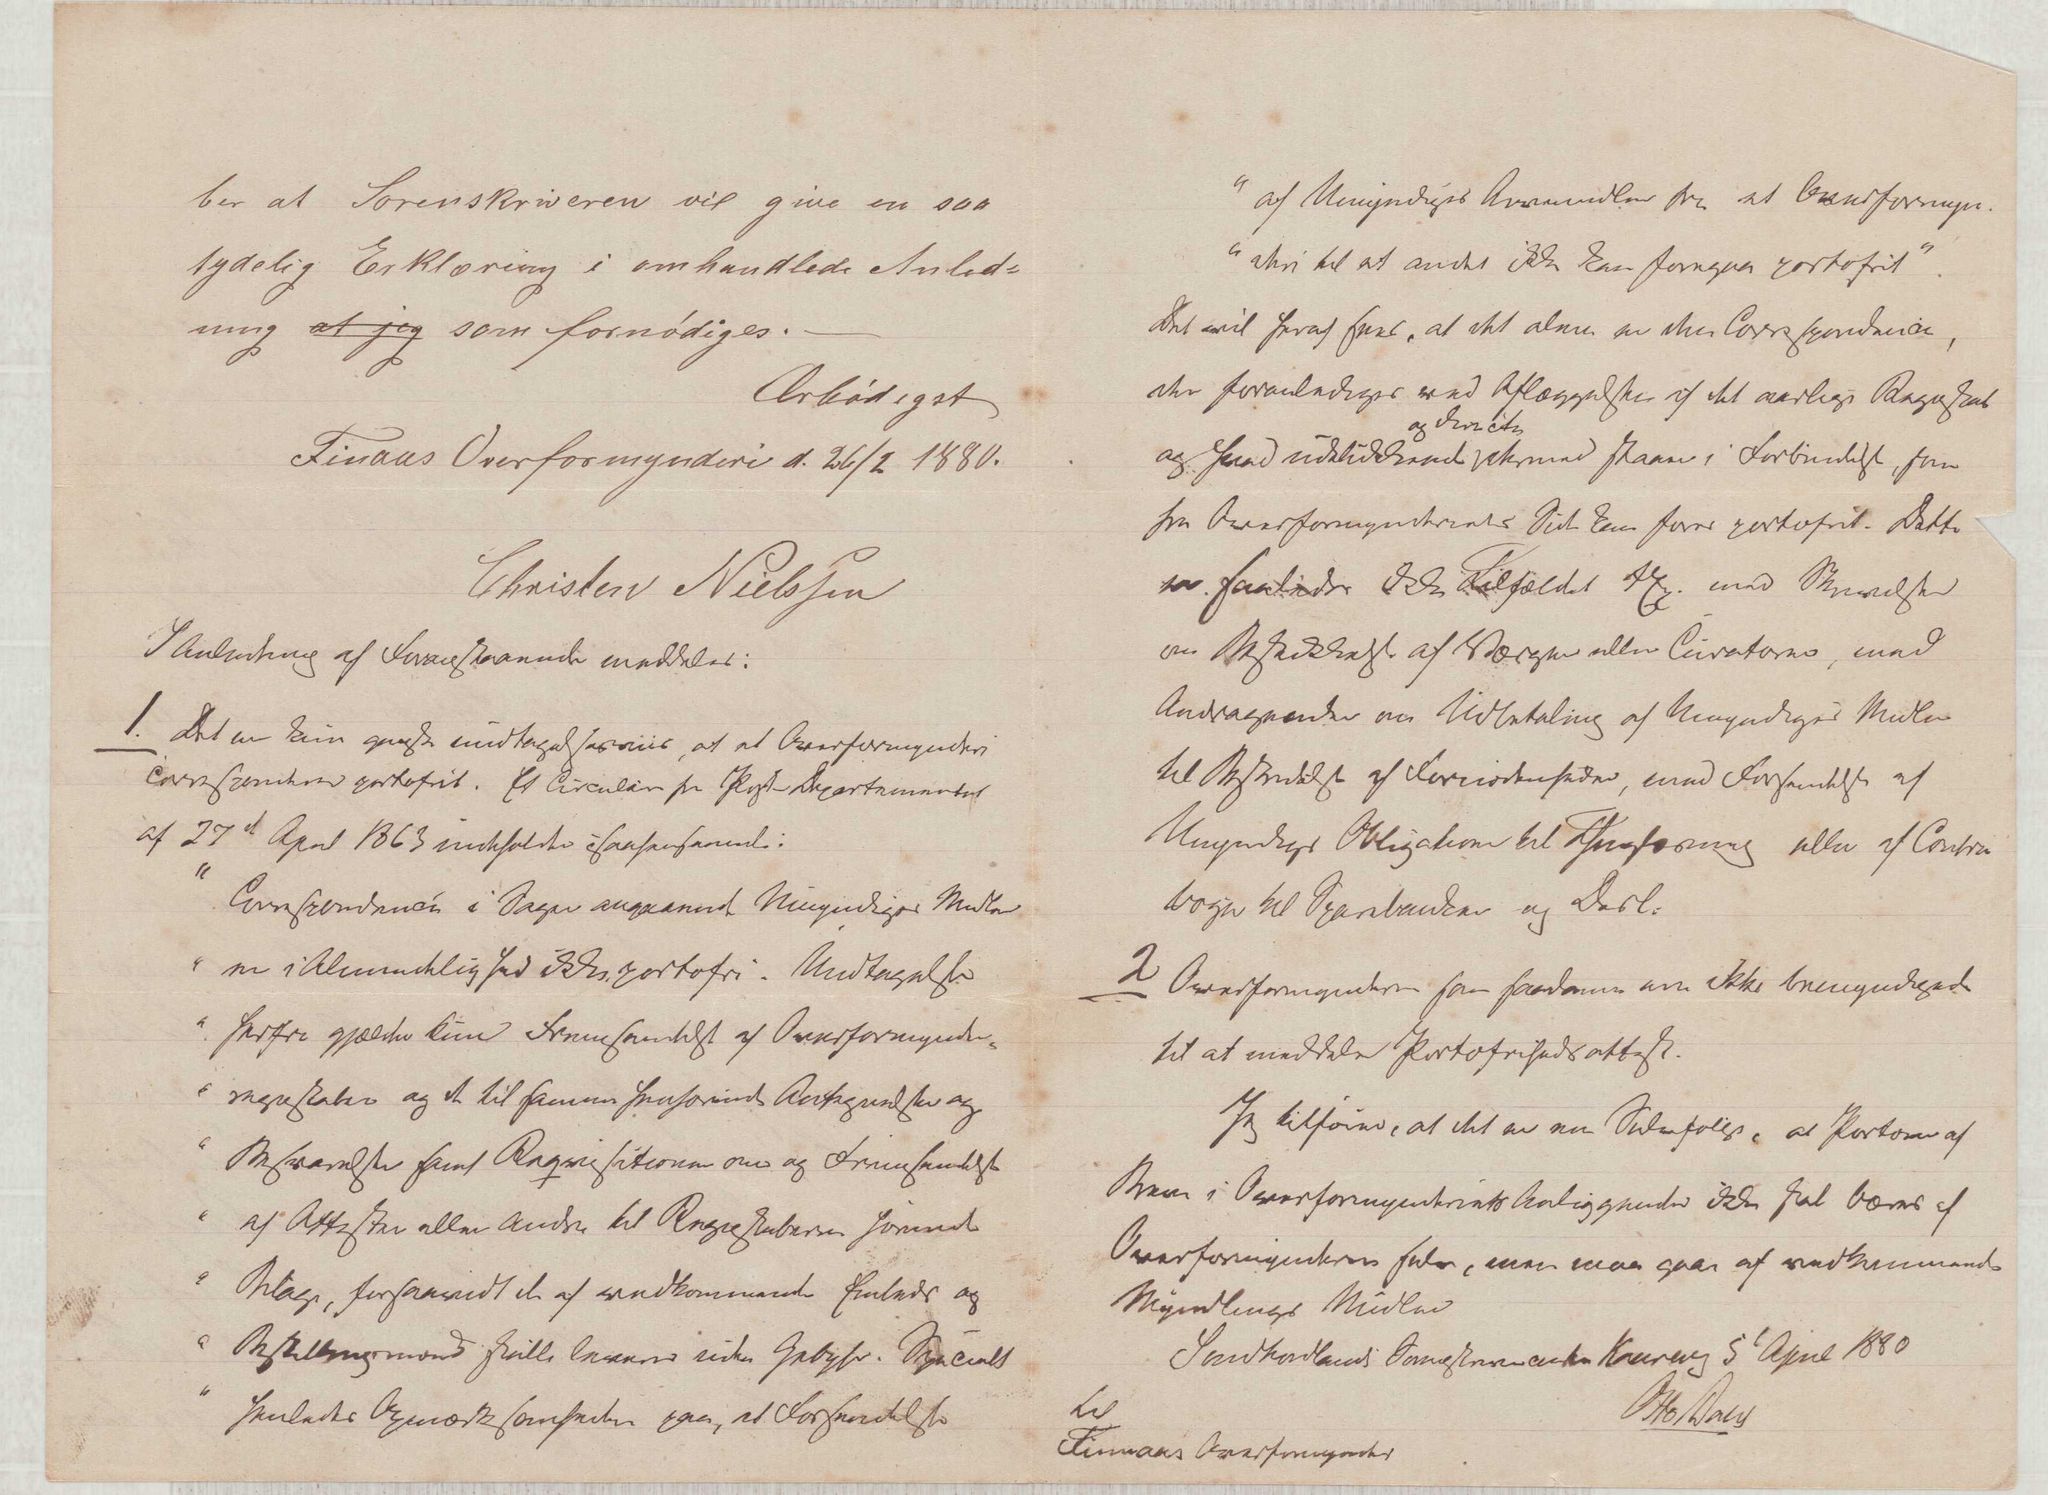 ber at Sorenskriveren vil give en saa
tydelig Erklæring i omhandlede Anled=
ning at jeg som fornødiges. —
Ærbødigst
Finaas Overformynderi d. 26/2 1880.
Christen Nielssen
I Anledning af Foranstaaende meddeles:
1. Det er kun ganske undtagelsesviis, at et Overformynderi
correspondere portofrit. Et Circulære fra Post Departementet
af 27d April 1863 indeholder isaahenseende:
" Correspondencen i Sager angaaende Umyndiges Midler
" er i Almindelighed ikke portofri. Undtagelse
" herfra gjælder kun Fremsendelse af Overformynder-
" regnskaber og de til samme henhørende Antegnelser og
" Besvarelser samt Reqvisitioner om og Fremsendelse
" af Attester eller andre til Regnskaberne hørende
" Bilage, forsaavidt de af vedkommende Embeds og
" Bestillingsmænd skulle leveres uden Gebyhr. Specielt
" henledes Opmærksomheden paa, at Forsendelse
" af Umyndiges Arvemidler fra et Overformyn-
" deri til et andet ikke kan foregaa portofrit".
Det vil heraf sees, at det alene er den Correspondence,
der foranlediges ved Aflæggelsen af det aarlige Regnskab
og directe
og hvad udelukkende dermed staaer i Forbindelse, som
fra Overformynderiets Side kan føres portofrit. Dette
er saaledes ikke Tilfældet Ex. med Skrivelser
om Beskikkelse af Værger eller Curatorer, med
Andragender om Udbetaling af Umyndiges Midler
til Bestridelse af Fornødenheder, med Forsendelse af
Umyndiges Obligationer til eller af Contra
bøger til Sparebanker og Desl.
2 Overformynderen som saadanne ere ikke bemyndigede
til at meddele Portofrihedsattest.
Jeg tilføier, at det er en Selvfølge, at Portoen af
Breve i Overformynderiets Anliggender ikke skal bæres af
Overformynderen selv, men maa gaae af vedkommende
Myndlings Midler
Søndhordlands Sorenskriverembede 5t April 1880
til
Finnaas Overformynder